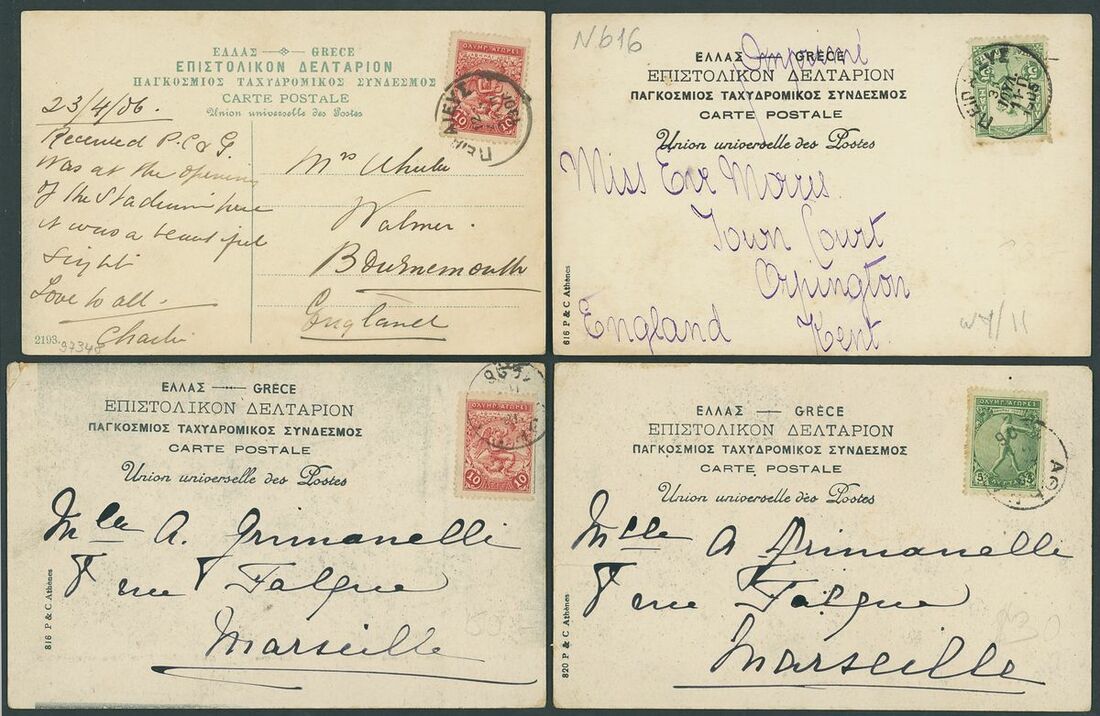 ΕΛΛΑΣ GRECE
ΕΠΙΣΤΟΛΙΚΟΝ ΔΕΛΤΑΡΙΟΝ
ΠΑΓΚΟΣΜΙΟΣ ΤΑΧΥΔΡΟΜΙΚΟΣ ΣΥΝΔΕΣΜΟΣ
CARTE POSTALE
Union universelle des Postes
ΟΛΥΜΠ. ΑΓΩΝΕΣ
10 10
ΠΕΙΡΑΙΕΥΣ
23/4/06
Received P.C & G.
Was at the opening
of the Stadium here
it was a beautiful
sight
Love to all -
Charlie
Mrs
Walmer.
Bournemouth
England
2193.
97348
N616
Imprimé
ΕΛΛΑΣ GRÈCE
ΕΠΙΣΤΟΛΙΚΟΝ ΔΕΛΤΑΡΙΟΝ
ΠΑΓΚΟΣΜΙΟΣ ΤΑΧΥΔΡΟΜΙΚΟΣ ΣΥΝΔΕΣΜΟΣ
CARTE POSTALE
Union universelle des Postes
ΠΕΙΡΑΙΕΥΣ
Miss Eve Morris.
Town Court
Orpington
England Kent.
616 P & C Athènes
ΕΛΛΑΣ GRÈCE
ΕΠΙΣΤΟΛΙΚΟΝ ΔΕΛΤΑΡΙΟΝ
ΠΑΓΚΟΣΜΙΟΣ ΤΑΧΥΔΡΟΜΙΚΟΣ ΣΥΝΔΕΣΜΟΣ
CARTE POSTALE
Union universelle des Postes
10 10
ΛΕΠΤΑ
Mlle A. Grimanelli
8 rue Falque
Marseille
816 P & C Athènes
ΕΛΛΑΣ GRÈCE
ΕΠΙΣΤΟΛΙΚΟΝ ΔΕΛΤΑΡΙΟΝ
ΠΑΓΚΟΣΜΙΟΣ ΤΑΧΥΔΡΟΜΙΚΟΣ ΣΥΝΔΕΣΜΟΣ
CARTE POSTALE
Union universelle des Postes
ΟΛΥΜΠ. ΑΓΩΝΕΣ
5 5
Mlle A Grimanelli
8 rue Falque
Marseille
820 P & C Athènes